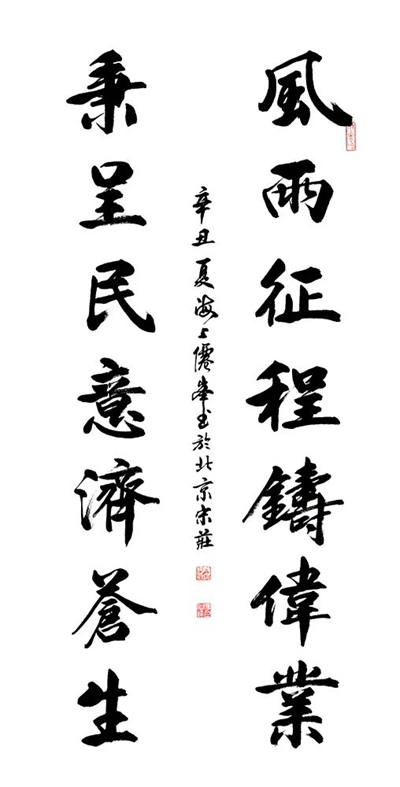 風雨征程鑄偉業
秉呈民意濟蒼生
辛丑夏海上僊峯书於北京宋莊